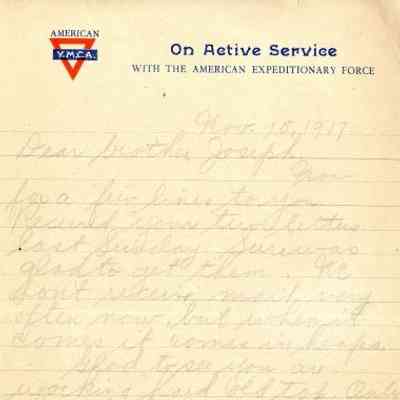 AMERICAN
Y.M.C.A.
On Active Service
WITH THE AMERICAN EXPEDITIONARY FORCE
Nov. 15, 1917
Dear brother Joseph,
Now
for a few lines to you
Received your two letters
last Sunday. Sure was
glad to get them. We
don't receive mail very
often now, but when it
comes it comes in heaps.
Glad to see you are
working hard old top. Only